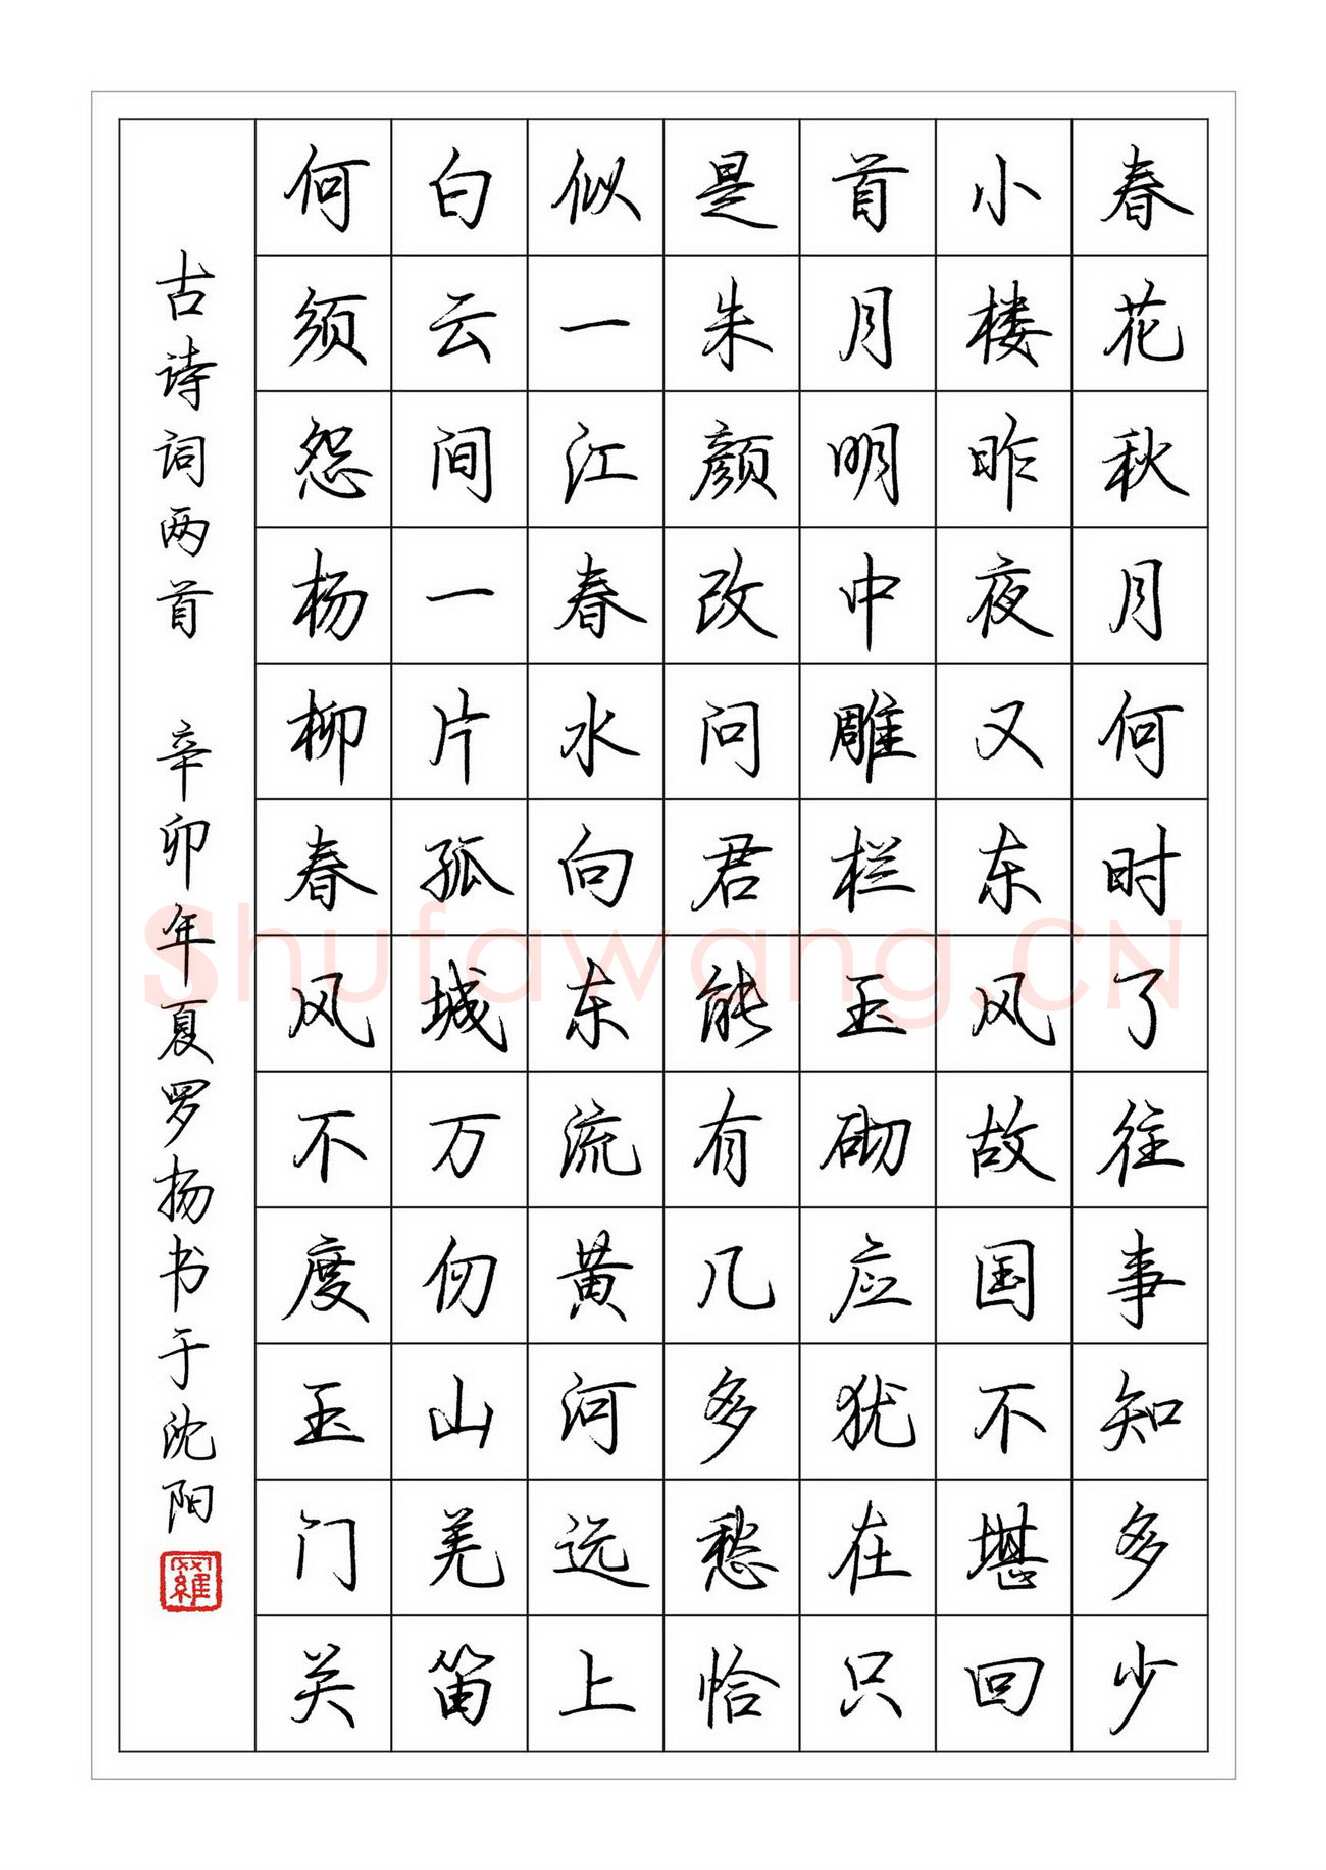 春花秋月何时了往事知多少
小楼昨夜又东风故国不堪回
首月明中雕栏玉砌应犹在只
是朱颜改问君能有几多愁恰
似一江春水向东流黄河远上
白云间一片孤城万仞山羌笛
何须怨杨柳春风不度玉门关
古诗词两首 辛卯年夏罗扬书于沈阳
羅
Shufawang.CN